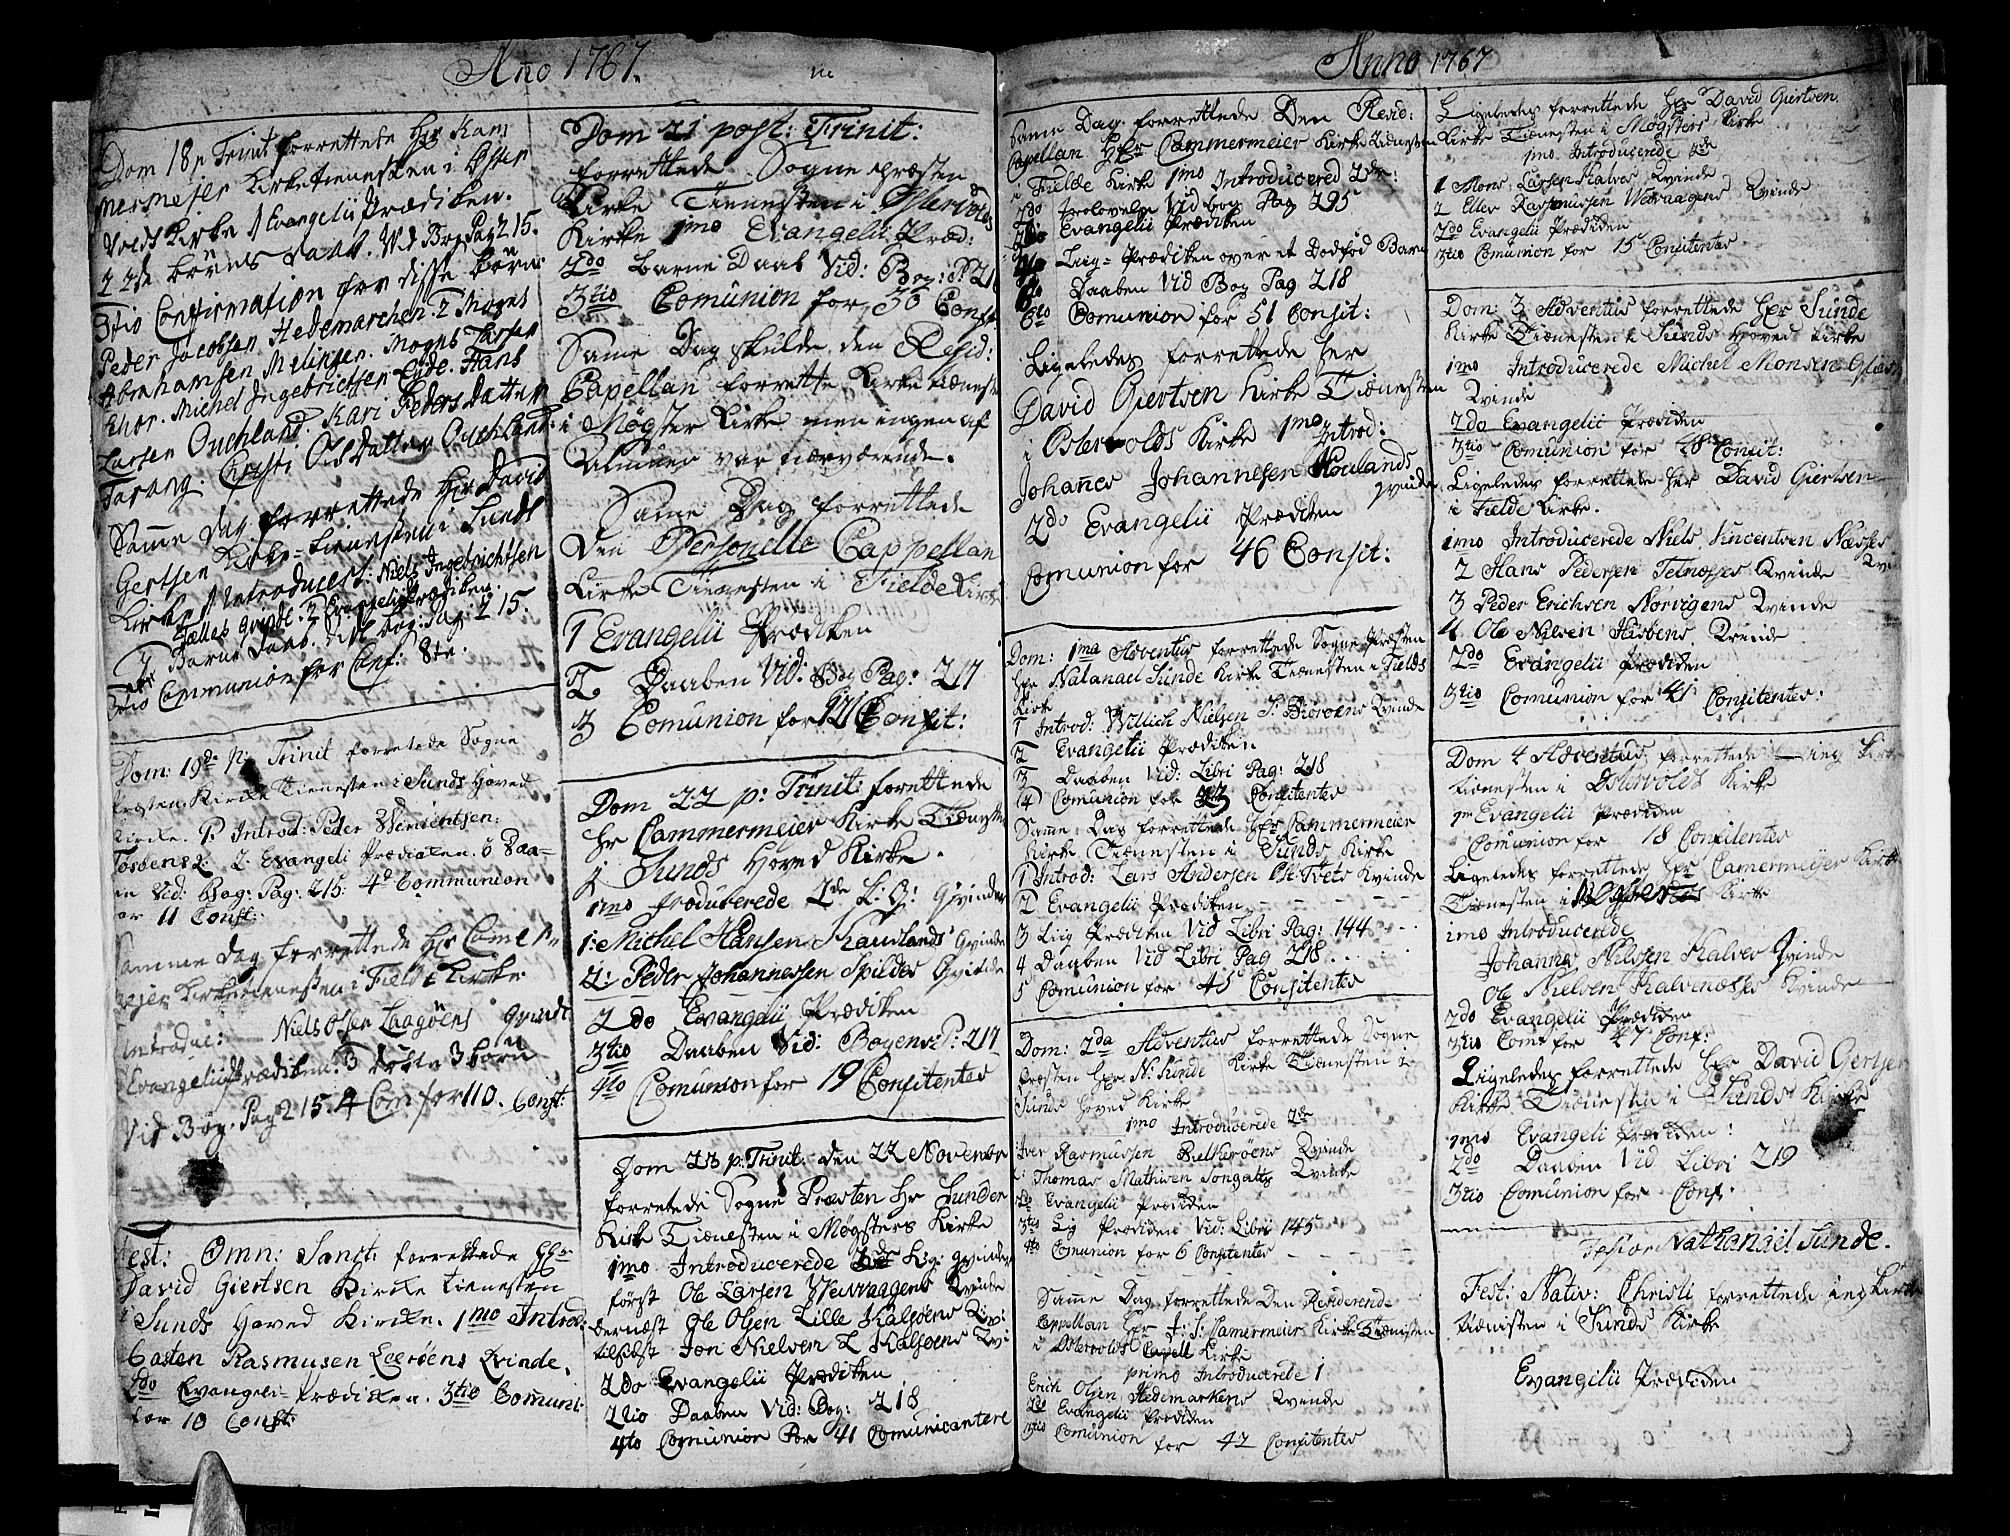 Año 1767.
Dom 18 p Trinit forrettede Hr Kam
mermejer Kirketienesten i Øster
Volds Kirke 1 Evangelii Prædiken.
2 2de Børns Daab. Vid Bog Pag 215.
3tio Confirmation for disse Børn
Peder Jacobsen Hedemarchen. 2 Mogns
Abrahamsen Melingen. Mogns Larsen
Michel Ingebrichtsen Eide. Hans
Larsen Ouchland. Kari Peders Datter
Tarang. Christi Ols Datter Ouchland:
Same Dag forrettede Hr David
Gertsen Kirke-tienesten i Sunds
Kirke 1 Introducert: Niels Ingebrichtsen
Qvinde. 2 Evangelii Prædiken.
3 Barne Daab. vid Bog: Pag 215.
Communion for Conf: 8te.
Dom: 19de p: Trinit forretede Sogne
Præsten Kircke Tienesten i Sunds Hoved
Kircke. P. Introd: Peder
2. Evangeli Prædicken. 3 Daa=
en Vid: Bog: Pag: 215: 4d Communion
or 11 Const:
Samme Dag forrettede Hr Camer
mejer Kirketienesten i Fielde Kirke
Introduc: Niels Olsen Laagöens Qvinde
Evangelii Prædiken. 3 döbte 3 börn
Vid Bog. Pag 215. 4 Com: for 110. Const:
Fest: Omn: Sanct: forrettede Hr
David Giertsen Kircke tienesten
i Sunds Hoved Kircke. 1mo Introd:
Casten Rasmusen Leerøens Qvinde.
2do Evangeli-Prædicken. 3tio Comuni:
for 10 Const:
Dom 21 post: Trinit:
forrettede Sogne Præsten
Kirke Tienesten i Østervolds
Kirke 1mo Evangelii Præd:
2do Barne Daab Vid: Bog: P: 21
3tio Comunion for 30 Const:
Same Dag skulde den Resid:
Capellan forrette Kirke tieneste
i Møgster Kirke men ingen af
Almuen var nærværende.
Same Dag forrettede
Den Personelle Cappellan
Kirke Tienesten i Fielde Kirke
1 Evangelii Prædiken
2 Daaben Vid: Bog Pag: 217
3 Comunion for Confit:
Dom 22 p: Trinit: forettede
Hr Cammermeier Kirke Tienesten
i Sunds Hoved Kirke.
1mo Introducerede 2de Qvinder
1: Michel Hansen Qvinde
2: Peder Johannessen Spildes Qvinde
2do Evangelii Prædiken
3tio Daaben Vid: Bogens P: 217
4to Comunion for 19 Confitentes
Dom 23 p: Trinit: den 22 Novembr
forretede Sogne Præsten Hr Sunde
Kirke Tienesten i Møgsters Kirke
1mo Introducerede Qvinder
først Ole Larsen Qvinde
dernæst Ole Olsen Lille Kalsøens Qvi:
tilsidst Jon Nielsen L Kalsøens Qvi
2do Evangelii Prædiken
Daaben Vid: Bog: 218
4to Comunion For 41 Comunicantere
Anno 1767
Same Dag forrettede Den Resid:
Capellan Hr Cammermeier Kirke Tienesten
i Fielde Kirke 1mo Introducered 2de:
2do Trolovelse Vid Bog Pag 295
Evangelii Prædiken
Liig-Prædiken over et Dødfød Barn
Daaben Vid Bog Pag 218
6to Comunion for 51 Confit:
Ligeledes forrettede Her
David Giertsen Kirke Tienesten
i Østervolds Kirke 1mo Introd:
Johañes Johannesen Houlands
Qvinde
2do Evangelii Prædiken
Comunion for 46 Confit:
Dom: 1ma Adventus forrettede Sogne Præsten
Hr Natanael Sunde Kirke Tienesten i Fields
Kirke
1 Introd: Willich Nielsen Qvinde
2 Evangelii Prædiken
3 Daaben Vid: Libri Pag: 218
4 Comunion for Confitentes
Same Dag forrettede Hr Cammermeier
Kirke Tienesten i Sunds Kirke
1 Introd: Lars Andersen Qvinde
2 Evangelii Prædiken
3 Liig Prædiken Vid Libri Pag: 144
4 Daaben Vid Libri Pag 218
5 Comunion for 45 Confitentes
Dom: 2da Adventus forrettede Sogne
Præsten Hr N: Sunde Kirke Tienesten i
Sunds Hoved Kirke
1mo Introducerede 2de
Iver Rasmussen Qvinde
Thomas Mathisen Qvinde
2do Evangelii Prædiken
3tio Lig Prædiken Vid: Libri 145
4to Comunion for 6 Confitentes
Same Dag forrettede Den Residerende
Cappellan Hr J: S: Camermeier Kirke Tienisten
i Østervolds Kirke
primo Introducerede 1
Erich Olsen Hedemarkens Qvinde
2do Evangelii Prædiken
3tio Comunion for 42 Confitentes
Ligeledes forrettede Hr David Giertsen
Kirke Tienesten i Møgsters Kirke
1mo Introducerede 2de
1 Mons Larsen Kalves Qvinde
2 Ellev Rasmussen Qvinde
2do Evangelii Prædiken
3tio Comunion for 15 Confitentes
Dom: 3 Adventus forrettede Hr Sunde
Kirke Tienesten i Sunds Hoved Kirke
1mo Introducerede Michel Monsen
Qvinde
2do Evangelii Prædiken
3tio Comunion for 28 Confit:
Ligeledes forrettede Her David Giertsen
i Fielde Kirke.
1mo Introducerede Niels Vincentsen Næsses
Qvi
2 Hans Pedersen Qvinde
3 Peder Erichsen Norvigens Qvinde
4 Ole Nilsen Qvinde
2do Evangelii Prædiken
3tio Comunion for 41 Confitentes:
Dom 4 Adventus forrettede ing Kirke
tienesten i Østervolds Kirke
Evangelii Prædiken
Comunion for 18 Confitentes
Ligeledes forrettede Hr Camermeijer Kirke
Tienesten i Kirke
1mo Introducerede
Johannes Nilssen Kalves Qvinde
Ole Nielsen Kalvenæsses Qvinde
2do Evangelii Prædiken
3tio Com: for 47 Conf:
Ligeledes forrettede Hr David Gertsen
Kirke Tienesten i Sunds Kirke
1mo Evangeli Prædiken:
2do Daaben Vid Libri 219
3tio Comunion for Conf:
Nathanael Sunde.
Fest: Nativ: Christi forrettede ieg Kirke
tienisten i Sunds Kirke
Evangelii Prædiken